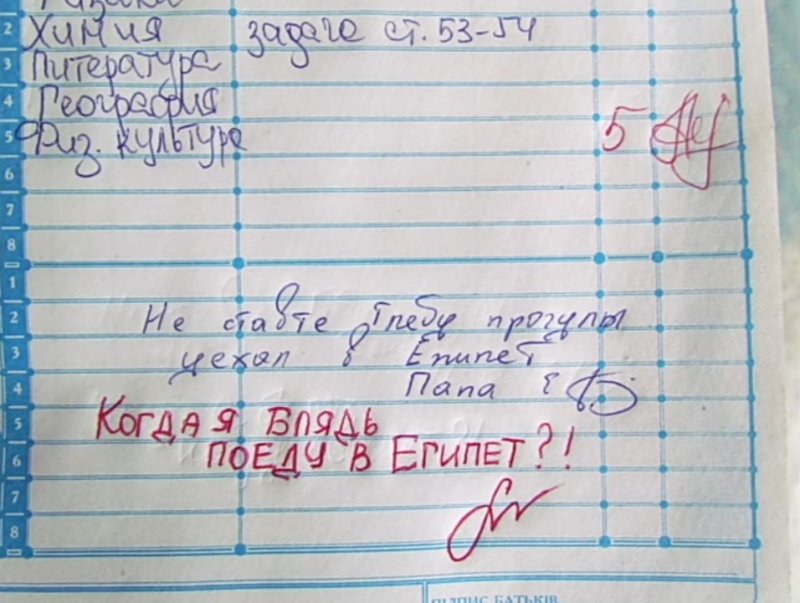 Физика
2 Химия задача ст. 53-54
3 Литература
4 География
5 Физ. культура 5
6
7
8
1
2 Не ставте Глебу прогулы
3 уехал в Египет
4 Папа
5 КОГДА Я БЛЯДЬ
6 ПОЕДУ В ЕГИПЕТ?!
7
8
ПІДПИС БАТЬКІВ